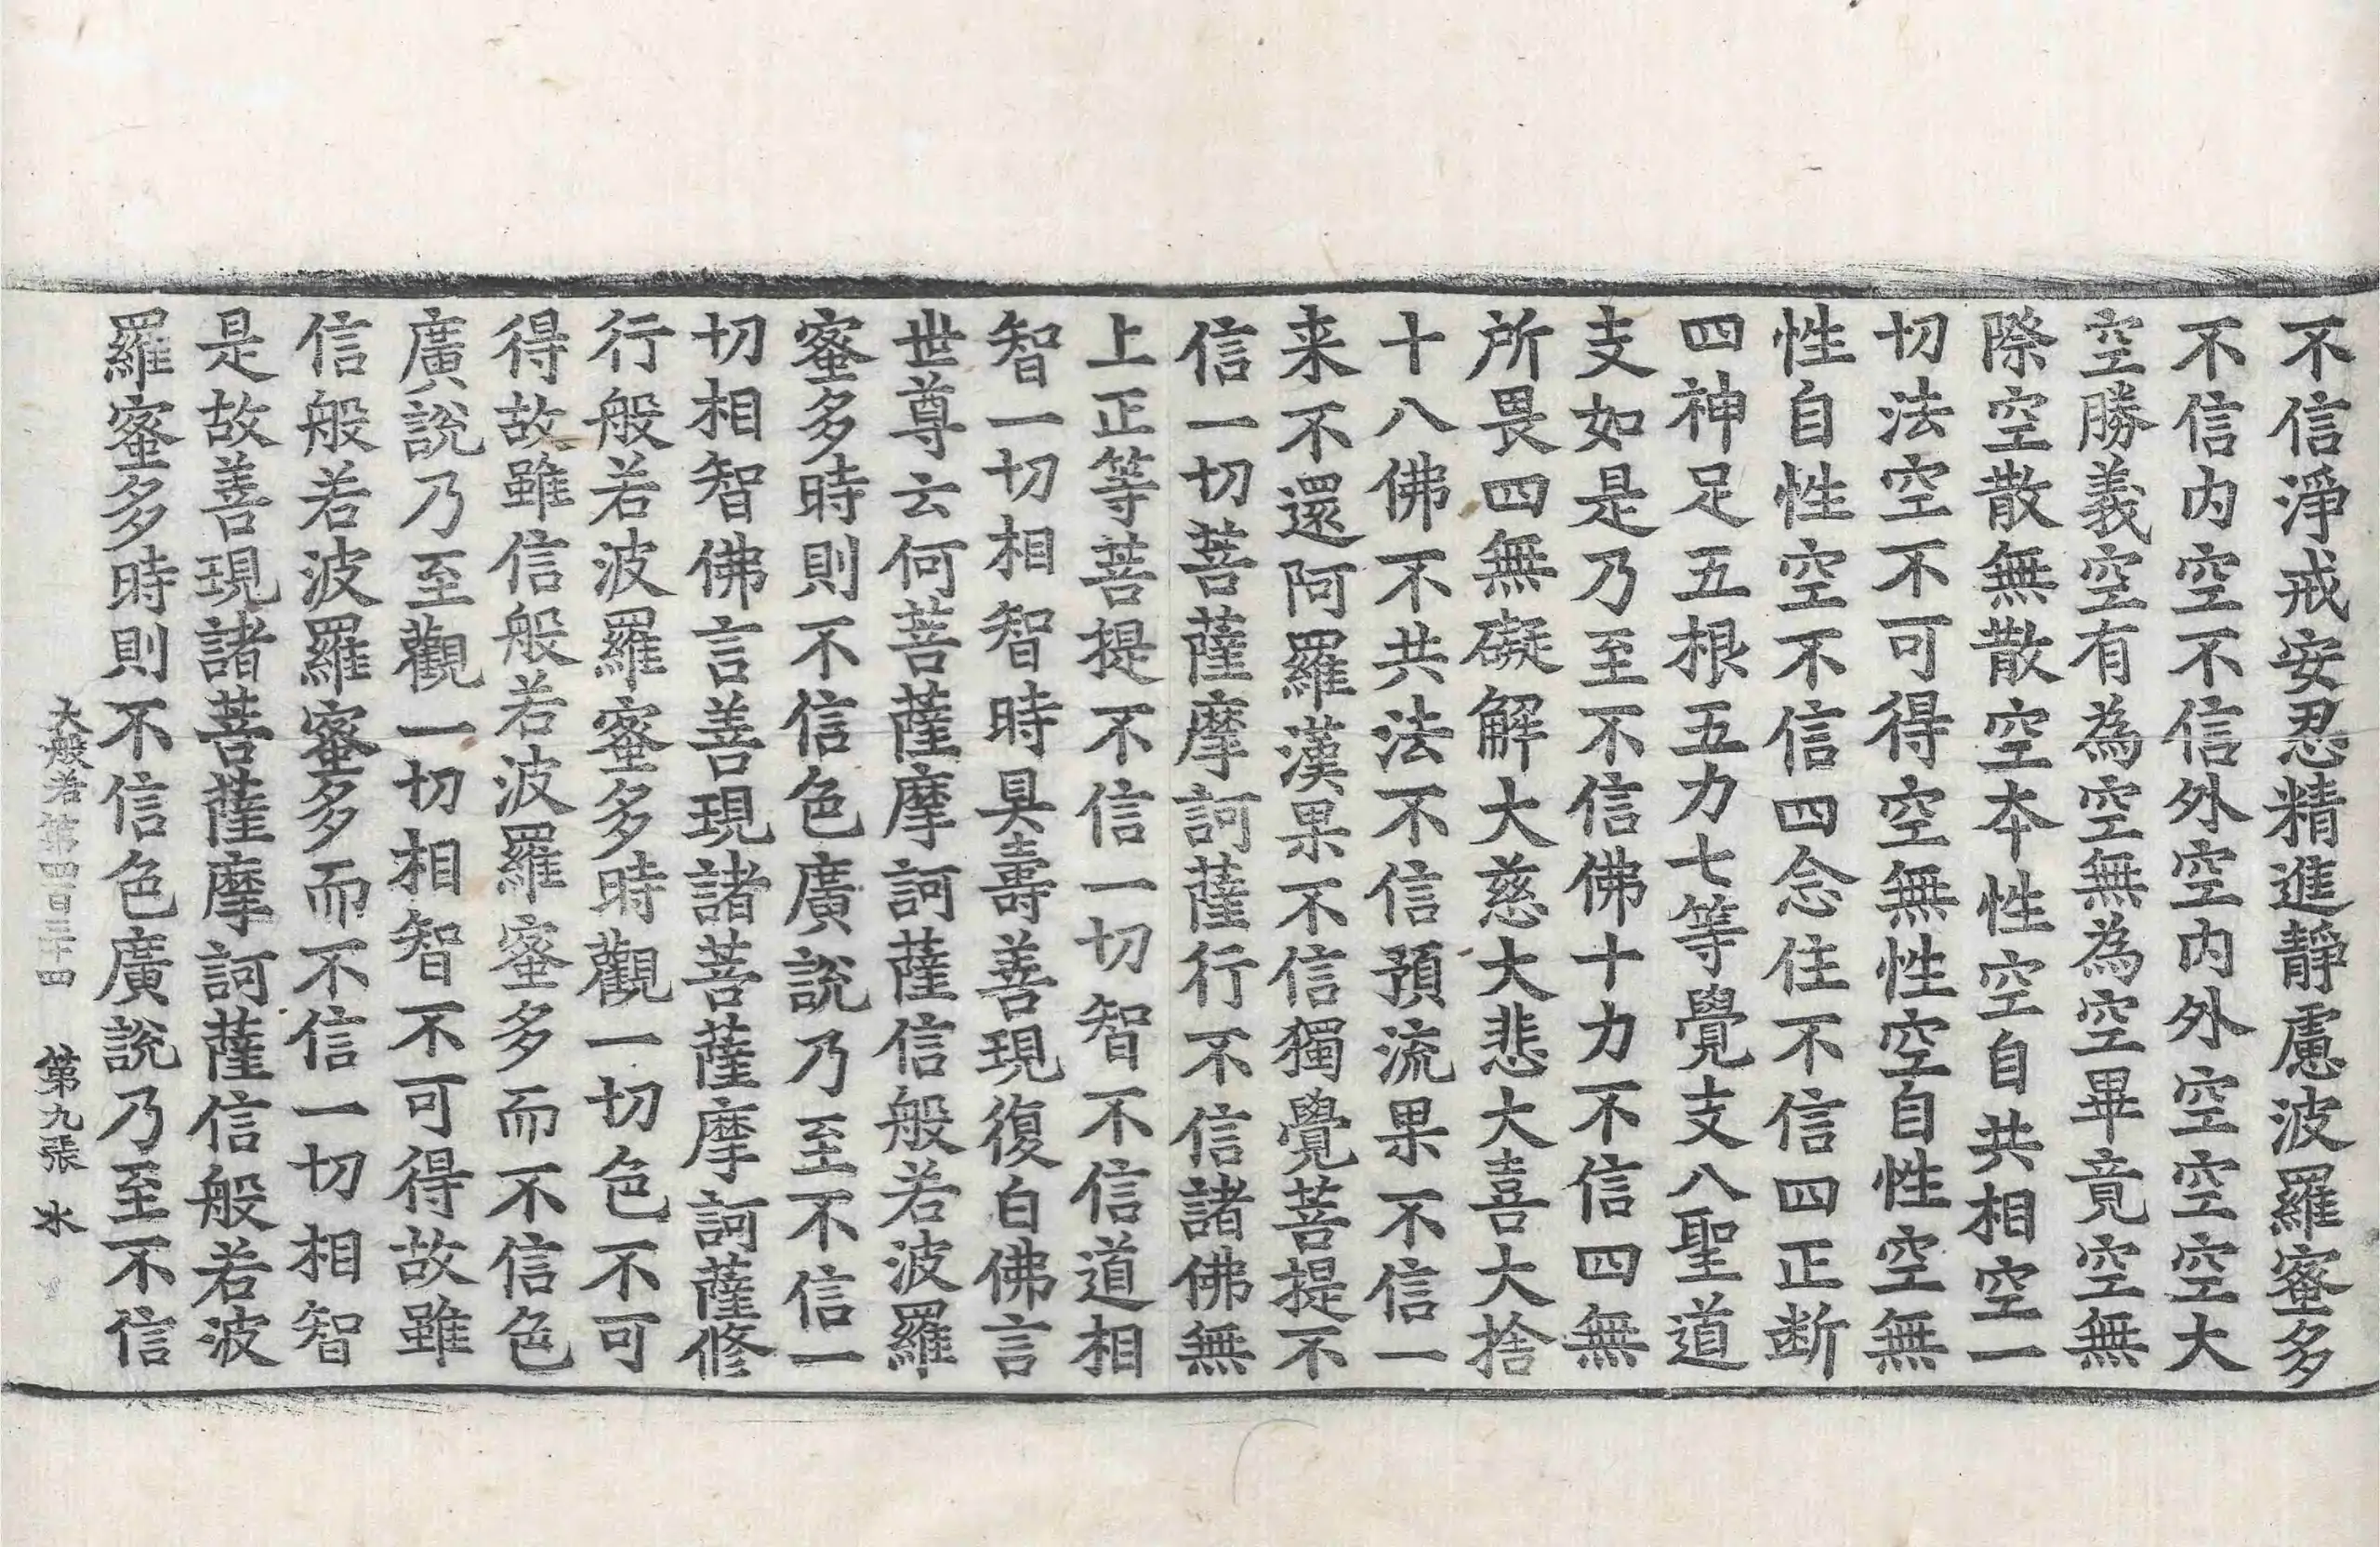 不信淨戒安忍精進靜慮波羅蜜多
不信内空不信外空内外空空空大
空勝義空有為空無為空畢竟空無
際空散無散空本性空自共相空一
切法空不可得空無性空自性空無
性自性空不信四念住不信四正断
四神足五根五力七等覺支八聖道
支如是乃至不信佛十力不信四無
所畏四無礙解大慈大悲大喜大捨
十八佛不共法不信預流果不信一
来不還阿羅漢果不信獨覺菩提不
信一切菩薩摩訶薩行不信諸佛無
上正等菩提不信一切智不信道相
智一切相智時具壽善現復白佛言
世尊云何菩薩摩訶薩信般若波羅
蜜多時則不信色廣說乃至不信一
切相智佛言善現諸菩薩摩訶薩修
行般若波羅蜜多時觀一切色不可
得故雖信般若波羅蜜多而不信色
廣說乃至觀一切相智不可得故雖
信般若波羅蜜多而不信一切相智
是故善現諸菩薩摩訶薩信般若波
羅蜜多時則不信色廣說乃至不信
大般若第四百三十四 第九張 氷